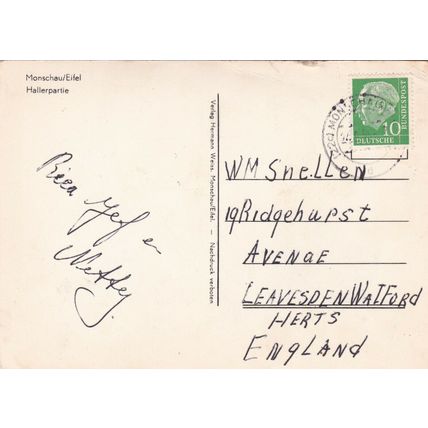 Monschau/Eifel
Hallerpartie
Verlag Hermann Weiss, Monschau/Eifel. — Nachdruck verboten.
10
DEUTSCHE
BUNDESPOST
WM Snellen
19 Ridgehurst
Avenue
Leavesden Watford
Herts
England